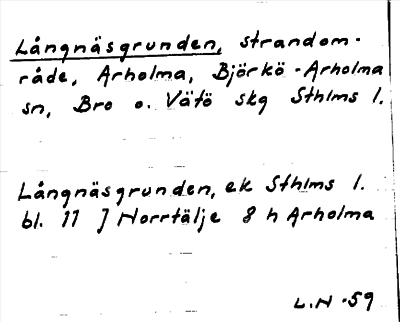 Långnäsgrunden, strandom-
råde, Arholma, Björkö-Arholma
sn, Bro o. Vätö skg Sthlms l.
Långnäsgrunden, ek Sthlms l.
bl. 11 J Norrtälje 8 h Arholma
L.N -59